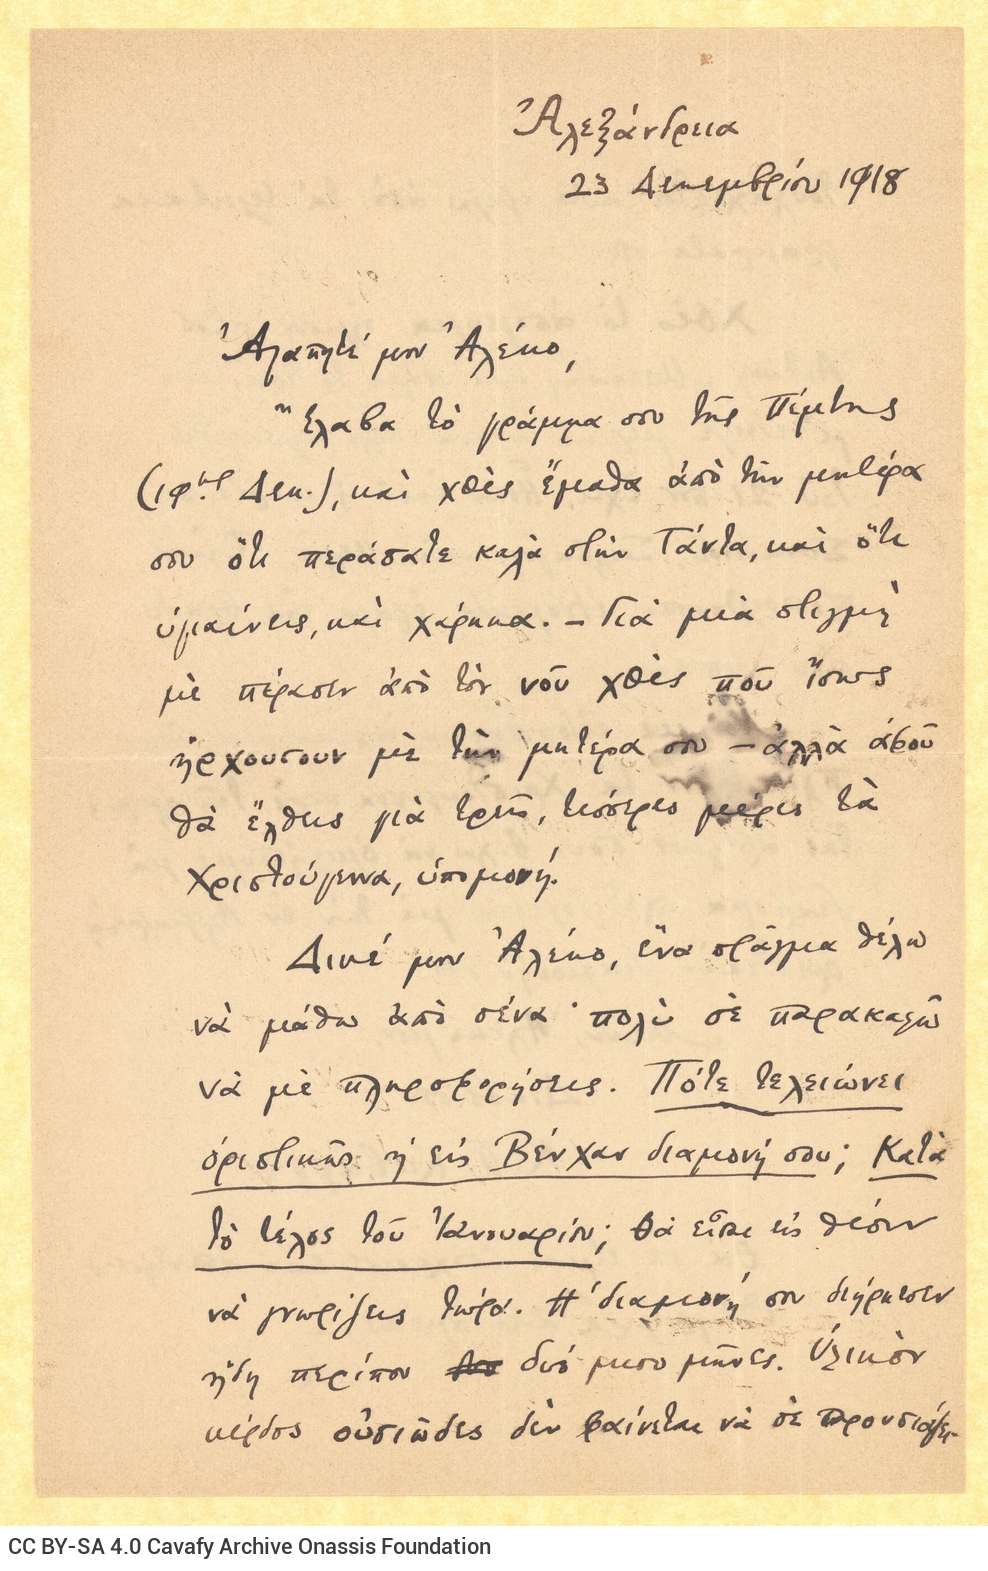 Ἀλεξάνδρεια
23 Δεκεμβρίου 1918
Ἀγαπητέ μου Ἀλέκο,
Ἔλαβα τὸ γράμμα σου τῆς Πέμπτης
(19ην Δεκ.), καὶ χθὲς ἔμαθα ἀπὸ τὴν μητέρα
σου ὅτι περάσατε καλὰ στὴν Τάντα, καὶ ὅτι
ὑγιαίνεις, καὶ χάρηκα. – Γιὰ μιὰ στιγμὴ
μὲ πέρασεν ἀπὸ τὸν νοῦ χθὲς ποῦ ἴσως
ἤρχουσουν μὲ τὴν μητέρα σου – ἀλλὰ ἀφοῦ
θὰ ἔλθεις γιὰ τρεῖς, τέσσερες μέρες τὰ
Χριστούγεννα, ὑπομονή.
Δικέ μου Ἀλέκο, ἕνα πρᾶγμα θέλω
νὰ μάθω ἀπὸ σένα· πολὺ σὲ παρακαλῶ
νὰ μὲ πληροφορήσεις. Πότε τελειώνει
ὁριστικῶς ἡ εἰς Βένχαν διαμονή σου; Κατὰ
τὸ τέλος τοῦ Ἰανουαρίου; Θὰ εἶσαι εἰς θέσιν
νὰ γνωρίζεις τώρα. Ἡ διαμονή σου διήρκεσεν
ἤδη περίπου δυό μισυ μῆνες. Ὑλικὸν
κέρδος οὐσιῶδες δὲν φαίνεται νὰ σὲ προυσιάζει
CC BY-SA 4.0 Cavafy Archive Onassis Foundation